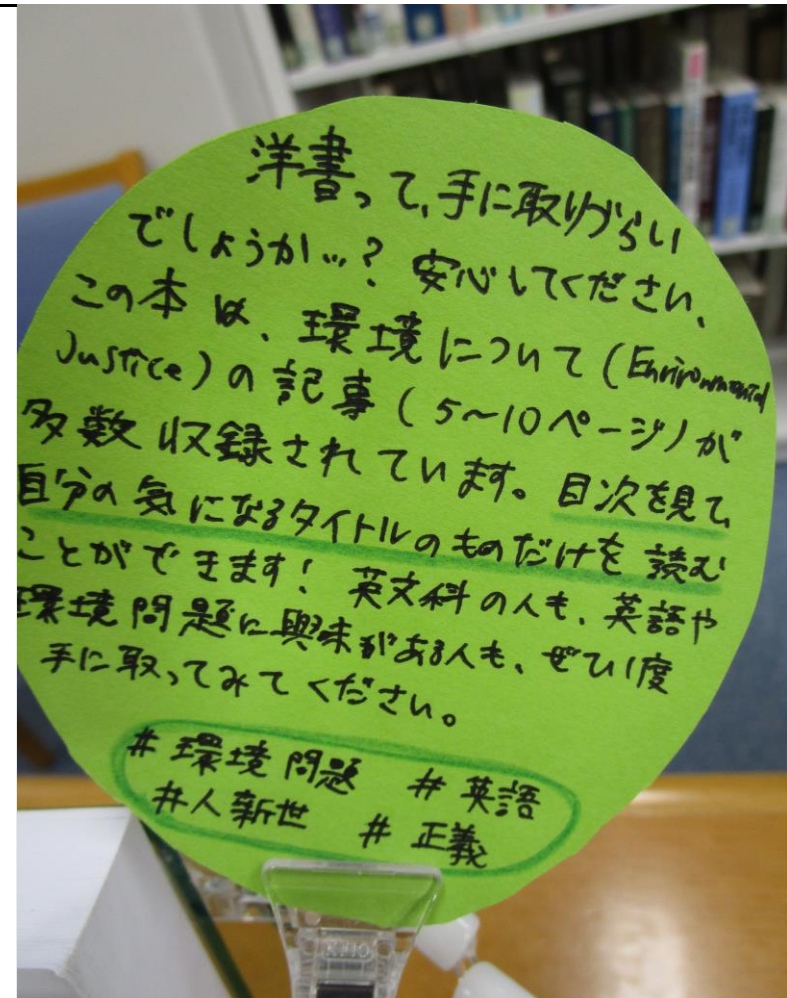 洋書って、手に取りづらい
でしょうか…? 安心してください、
この本は、環境について(Environmental
Justice)の記事(5～10ページ)が
多数収録されています。目次を見て、
自分の気になるタイトルのものだけを読む
ことができます! 英文科の人も、英語や
環境問題に興味がある人も、ぜひ1度
手に取ってみてください。
#環境問題 #英語
#人新世 #正義